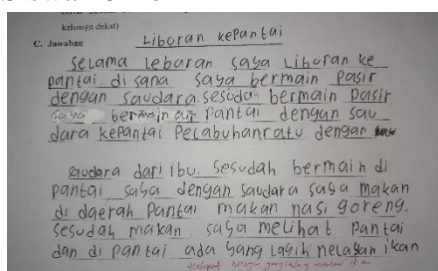 keluarga dekat)
C. Jawaban
Liburan kepantai
Selama Lebaran saya Liburan ke
pantai. di sana saya bermain pasir
dengan saudara. sesudah bermain pasir
saya bermain air pantai dengan sau
dara kepantai Pelabuhanratu dengan
saudara dari ibu. Sesudah bermain di
pantai saya dengan saudara saya makan
di daerah Pantai makan nasi goreng.
sesudah makan saya melihat pantai
dan di pantai ada yang lagih nelayan ikan